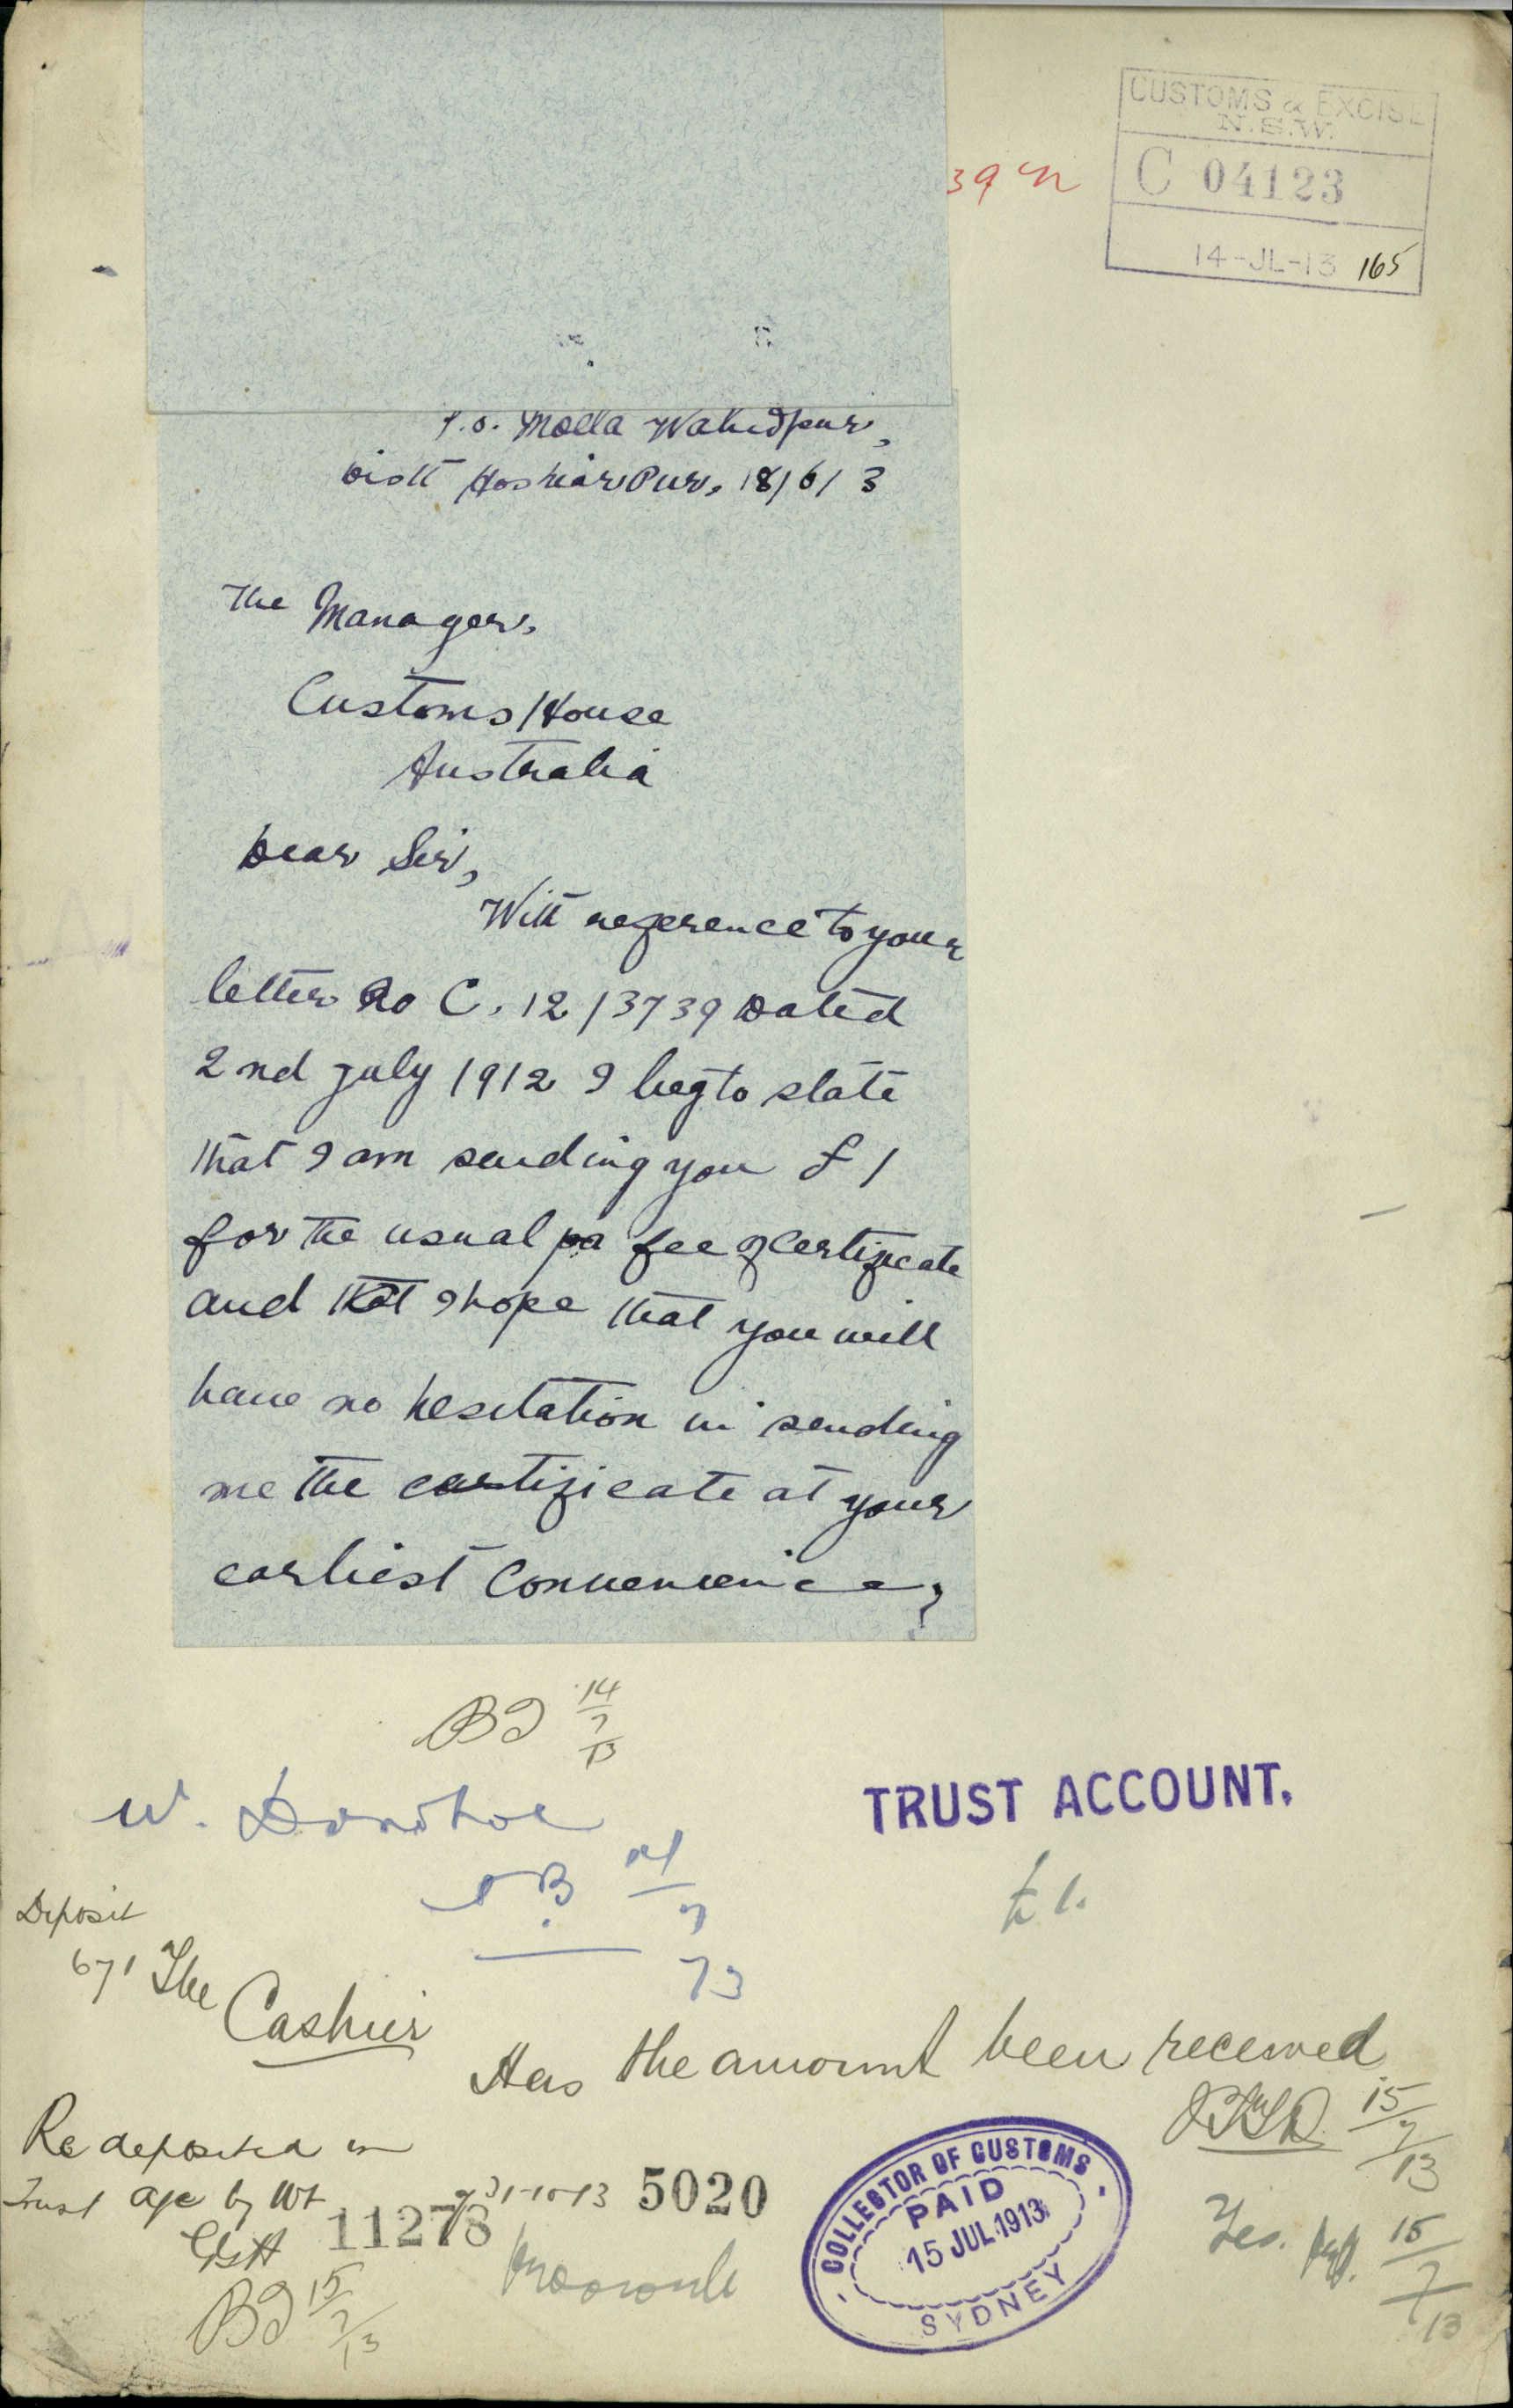 CUSTOMS & EXCISE
N.S.W.
39 m
C 04123
14-JL-13 165
P.O. Molla Wahidpur,
Distt HoshiarPur, 18/6/3
The Manager,
Customs House
Australia
Dear Sir,
With reference to your
letter No C. 12/3739 Dated
2nd July 1912 I beg to state
that I am sending you £1
for the usual pa fee of Certificate
and that I hope that you will
have no hesitation in sending
me the certificate at your
earliest convenience,
14/7/13
W. Donohoe
14/7/13
TRUST ACCOUNT.
£1.
Deposit
671 The Cashier
Has the amount been received
15/7/13
Redeposited in
Trust a/c by Wt
11273
31-10-13 5020
COLLECTOR OF CUSTOMS
PAID
15 JUL 1913
SYDNEY
Yes. 15/7/13
15/7/13